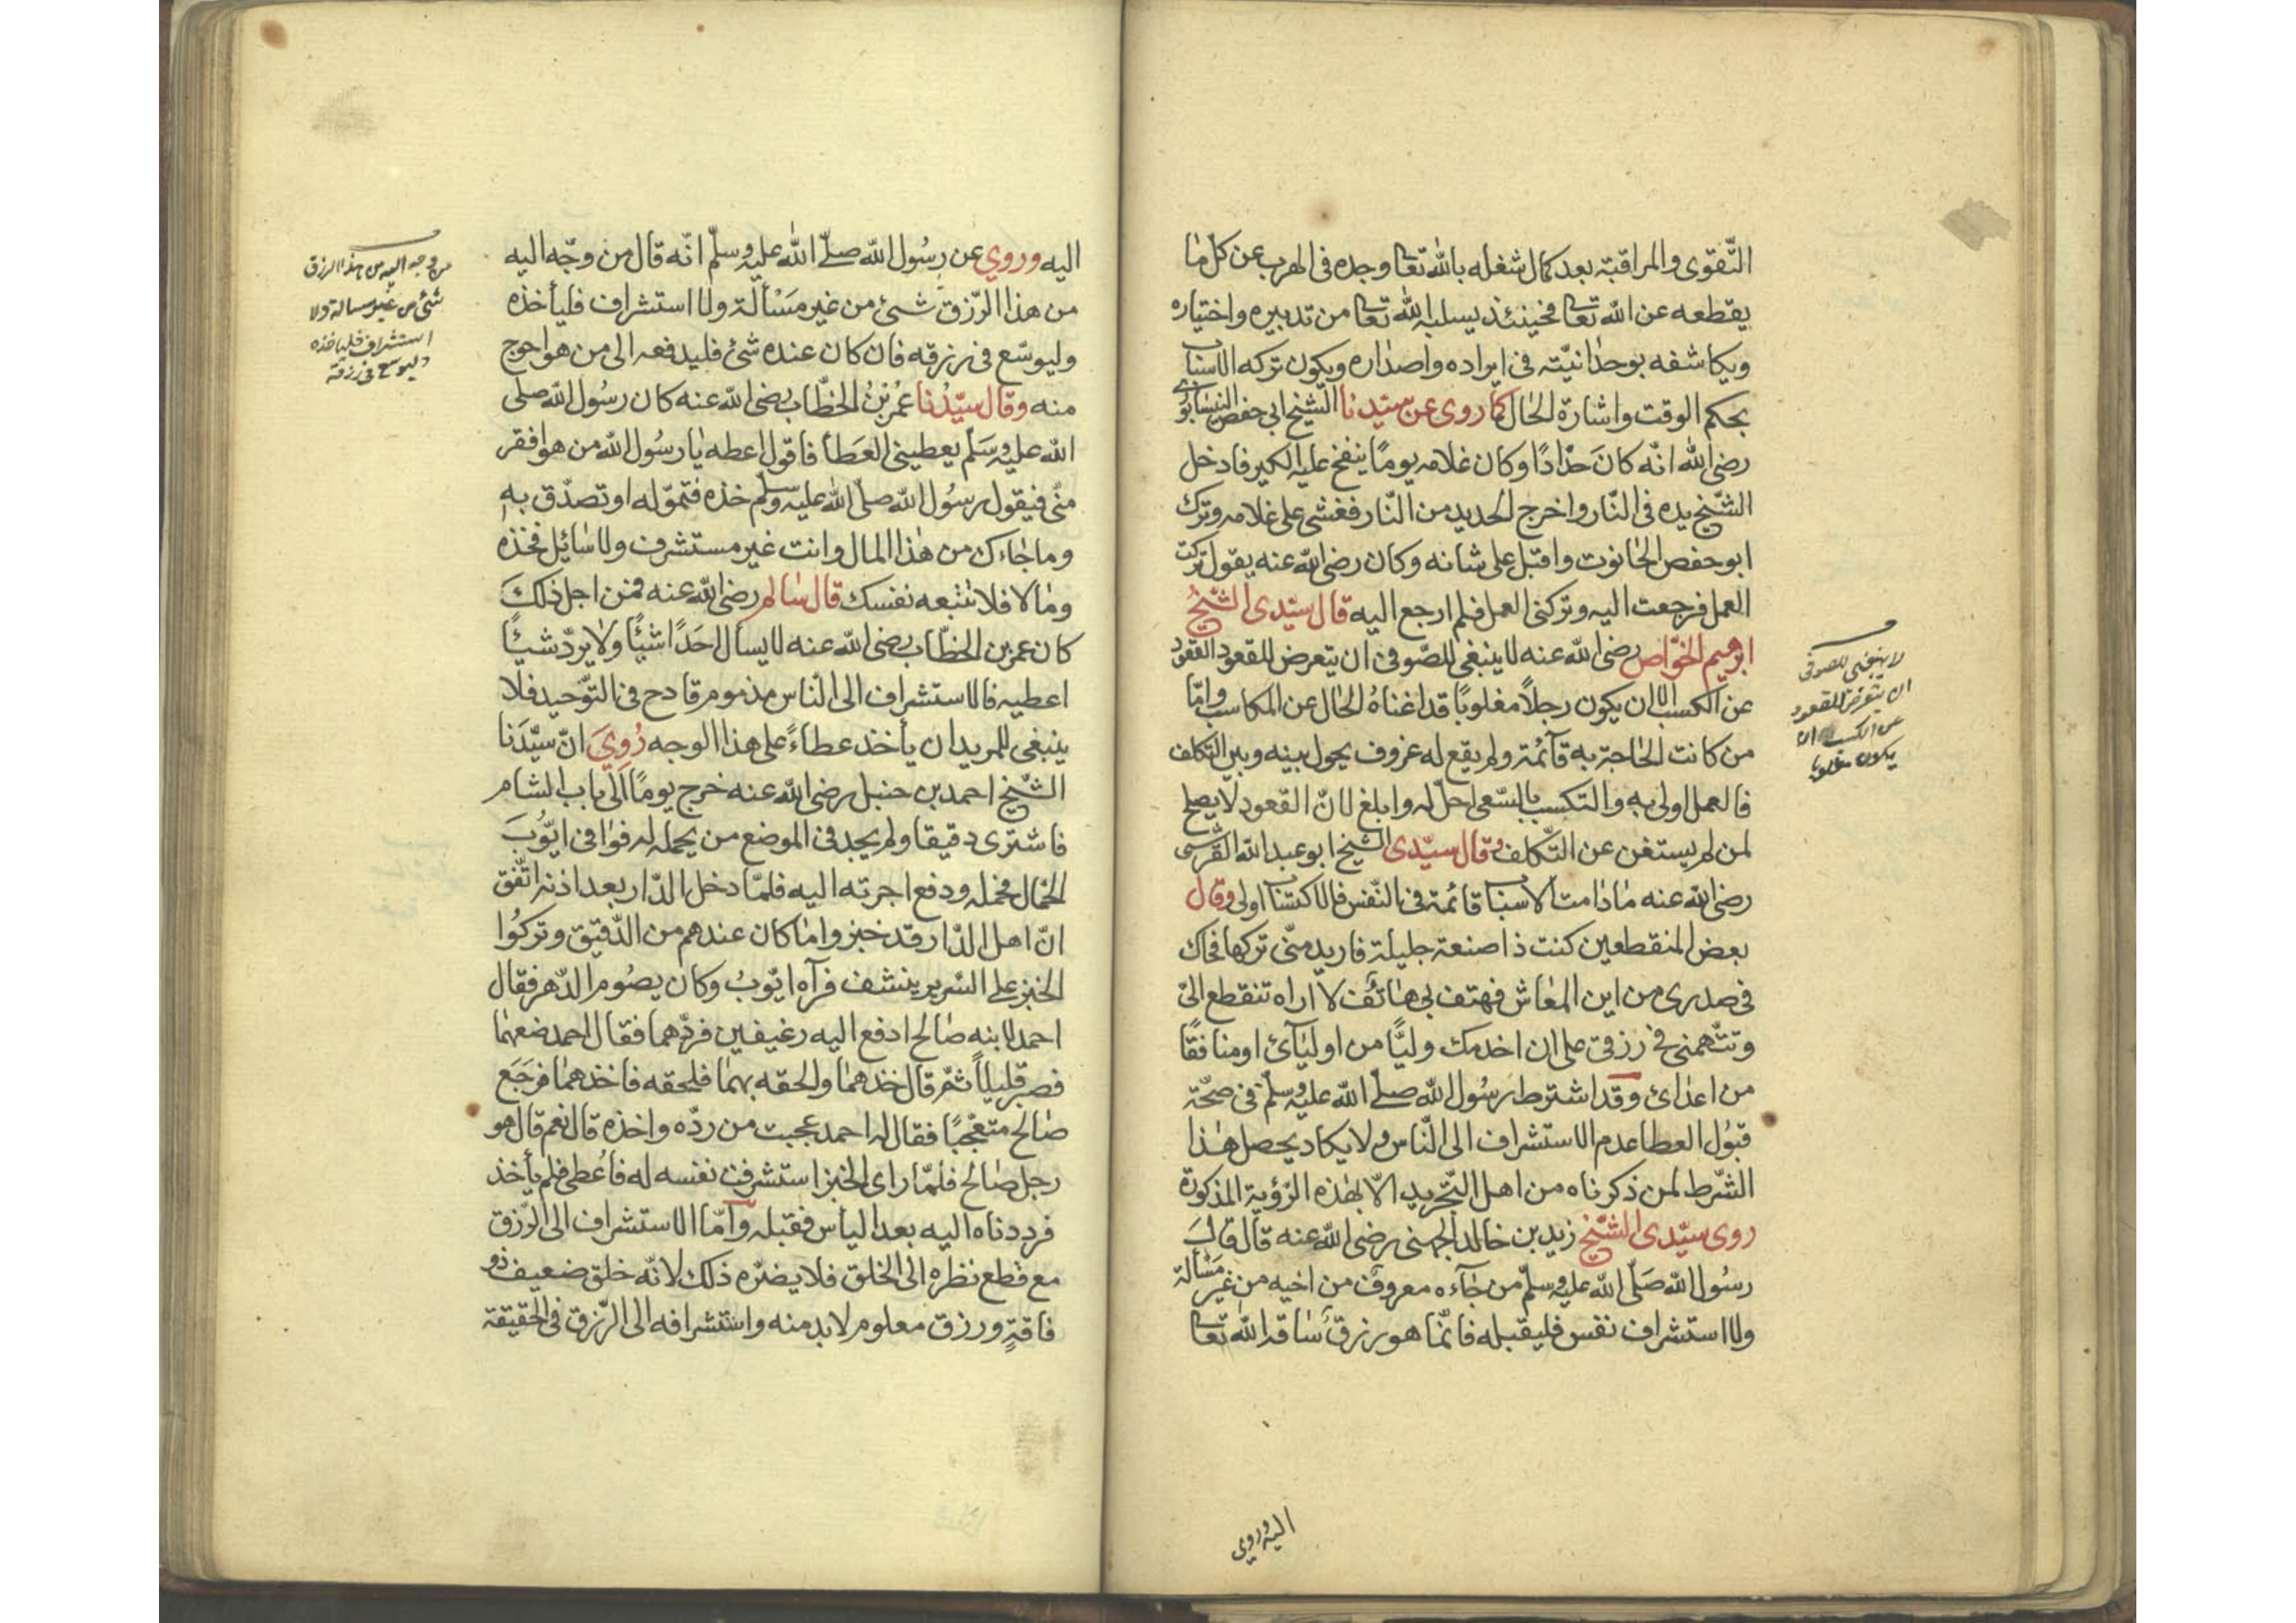 التّقوى والمراقبة بعد كمال شغله بالله تعا وجده فى الهرب عن كلّ ما
يقطعه عن الله تعا فحينئذ يسلبه الله تعا من تدبيره واختياره
ويكاشفه بوحدانيّته فى ايراده واصداره ويكون تركه الاسباب
بحكم الوقت واشارة الحال كما روى عن سيّدنا الشيخ ابى حفص النيسابورى
رضى الله انّه كان حدّادًا وكان غلامه يومًا ينفخ عليه الكير فادخل
الشّيخ يده فى النّار واخرج الحديد من النّار فغشى على غلامه وترك
ابو حفص الحانوت واقبل على شانه وكان رضى الله عنه يقول تركت
العمل فرجعت اليه وتركنى العمل فلم ارجع اليه قال سيّدى الشّيخ
ابرهيم الخوّاص رضى الله عنه لا ينبغى للصّوفى ان يتعرض للقعود القعود
عن الكسب الا ان يكون رجلاً مغلوبًا قد اغناه الحال عن المكاسب وامّا
من كانت الحاجة به قائمة ولم يقع له عزوف يحول بينه وبين التكلف
فالعمل اولى به والتكسب بالسّعى احلّ له وابلغ لانّ القعود لا يصلح
لمن لم يستغن عن التّكلف وقال سيّدى الشيخ ابو عبد الله القرشى
رضى الله عنه ما دامت الاسباب قائمة فى النّفس فالاكتساب اولى وقال
بعض المنقطعين كنت ذا صنعة جليلة فاريد منّى تركها فحاك
فى صدرى من اين المعاش فهتف بى هاتف لا اراه تنقطع الىّ
وتتّهمنى فى رزقى على ان اخدمك وليًّا من اوليآئ او منافقًا
من اعدائ وقد اشترط رسُول الله صلّى الله عليه وسلّم فى صحّة
قبُول العطا عدم الاستشراف الى النّاس ولا يكاد يحصل هٰذا
الشّرط لمن ذكرناه من اهل التّجريد الّا بهٰذه الرّؤية المذكورة
روى سيّدى الشّيخ زيد بن خالد الجهنى رضى الله عنه قال قال
رسُول الله صَلّى الله عليه وسلّم من جآءه معروف من اخيه من غير مسْألة
ولا استشراف نفس فليقبله فانّما هو رزق ساقه الله تعا
لا ينبغى للصوفى
ان يتعرض للقعود
عن الكسب الا ان
يكون مغلوبا
اليه وروى
اليه وروي عن رسُول الله صلّى الله عليه وسلّم انّه قال من وجّه اليه
من هذا الرّزق شئ من غير مسْألة ولا استشراف فليأخذه
وليوسّع فى رزقه فان كان عنده شئ فليدفعه الى من هو احوج
منه وقال سيّدُنا عُمر بنُ الخطّاب رضى الله عنه كان رسُول الله صلى
الله عليه وسَلّم يعطينى العَطأ فاقول اعطه يا رسُول الله من هو افقر
منّى فيقول رسُول الله صلّى الله عليه وسلّم خذه فتموّله او تصدّق به
وما جاءك من هٰذا المال وانت غير مستشرف ولا سائل فخذه
وما لا فلا تتبعه نفسك قال سالم رضى الله عنه فمن اجل ذلك
كان عمر بن الخطّاب رضى الله عنه لا يسأل احَدًا شئًا ولا يردّ شئًا
اعطيه فالاستشراف الى النّاس مذموم قادح فى التّوحيد فلا
ينبغى للمريد ان يأخذ عطاءً على هذا الوجه رُويَ انّ سيّدَنا
الشّيخ احمد بن حنبل رضى الله عنه خرج يومًا الى باب الشام
فاشترى دقيقا ولم يجد فى الموضع من يحمله له فوافى ايّوبَ
الحمّال فحمله ودفع اجرته اليه فلمّا دخل الدّار بعد اذنه اتّفق
انّ اهل الدّار قد خبزوا ما كان عندهم من الدّقيق وتركوا
الخبز على السّرير ينشف فرآه ايّوبُ وكان يصُوم الدّهر فقال
احمد لابنه صالح ادفع اليه رغيفين فردّهما فقال احمد ضعهما
فصبر قليلاً ثمّ قال خذهما والحقه بهما فلحقه فاخذهما فرجَع
صالح متعجّبًا فقال له احمد عجبت من ردّه واخذه قال نعم قال هو
رجل صالح فلمّا راى الخبز استشرفت نفسه له فاُعطى فلم يأخذ
فرددناه اليه بعد اليأس فقبله وامّا الاستشراف الى الرّزق
مع قطع نظره الى الخلق فلا يضرّه ذلك لانّه خلق ضعيف ذو
فاقةٍ ورزق معلوم لا بد منه واستشرافه الى الرّزق فى الحقيقة
من وجه اليه من هذا الرزق
شئ من غير مسالة ولا
استشراف فلياخذه
وليوسع فى رزقه